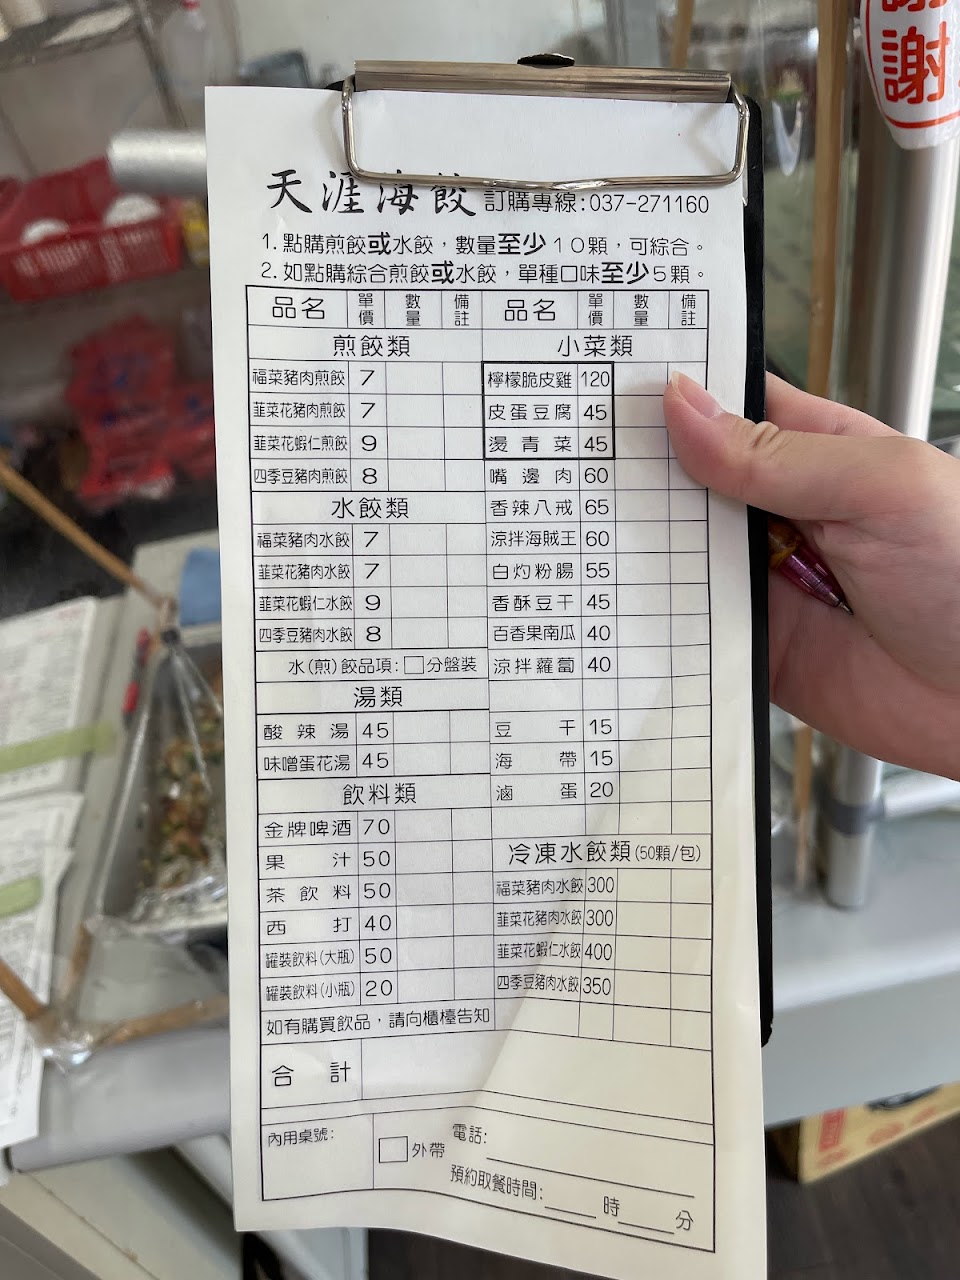 謝
天涯海餃 訂購專線:037-271160
1. 點購煎餃或水餃，數量至少10顆，可綜合。
2. 如點購綜合煎餃或水餃，單種口味至少5顆。
品名 單價 數量 備註 品名 單價 數量 備註
煎餃類
福菜豬肉煎餃 7
韮菜花豬肉煎餃 7
韮菜花蝦仁煎餃 9
四季豆豬肉煎餃 8
水餃類
福菜豬肉水餃 7
韮菜花豬肉水餃 7
韮菜花蝦仁水餃 9
四季豆豬肉水餃 8
水(煎)餃品項:□分盤裝
湯類
酸辣湯 45
味噌蛋花湯 45
飲料類
金牌啤酒 70
果汁 50
茶飲料 50
西打 40
罐裝飲料(大瓶) 50
罐裝飲料(小瓶) 20
如有購買飲品，請向櫃檯告知
小菜類
檸檬脆皮雞 120
皮蛋豆腐 45
燙青菜 45
嘴邊肉 60
香辣八戒 65
涼拌海賊王 60
白灼粉腸 55
香酥豆干 45
百香果南瓜 40
涼拌蘿蔔 40
豆干 15
海帶 15
滷蛋 20
冷凍水餃類(50顆/包)
福菜豬肉水餃 300
韮菜花豬肉水餃 300
韮菜花蝦仁水餃 400
四季豆豬肉水餃 350
合計
內用桌號:
□外帶
電話:
預約取餐時間: 時 分